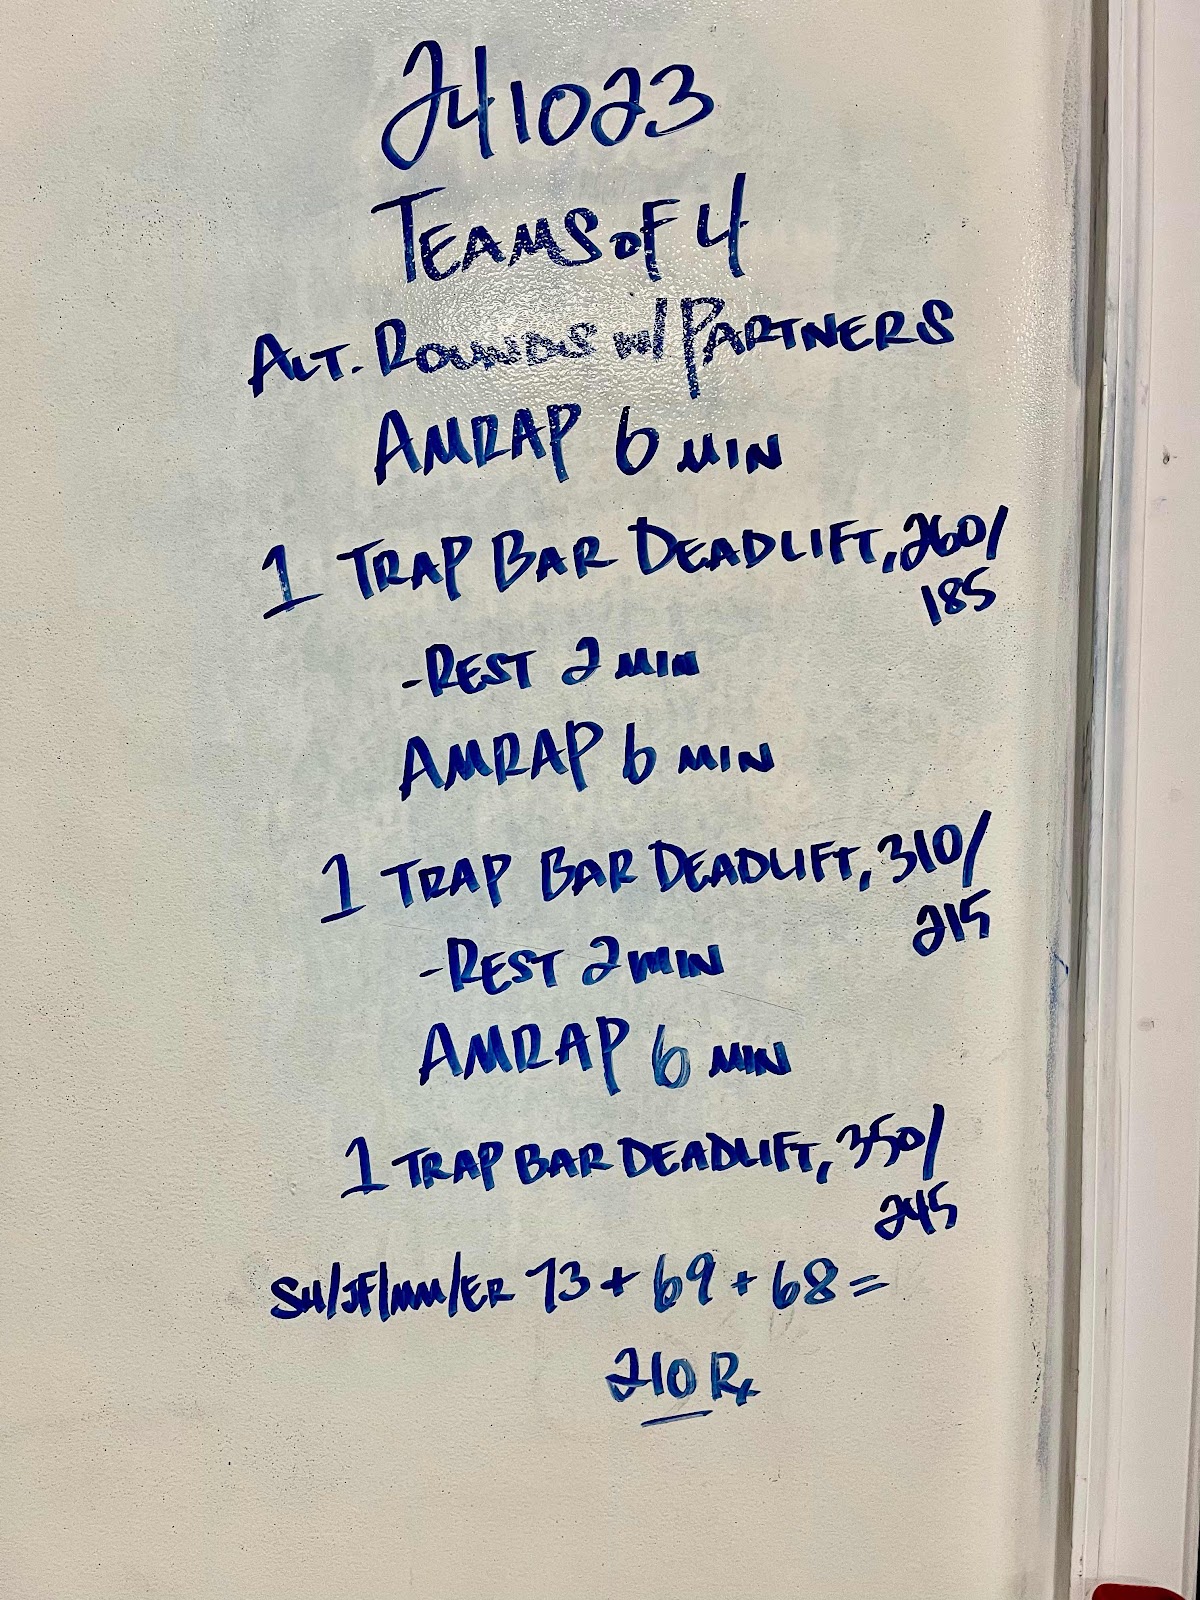 241023
TEAMS OF 4
ALT. ROUNDS W/ PARTNERS
AMRAP 6 MIN
1 TRAP BAR DEADLIFT, 260/
185
-REST 2 MIN
AMRAP 6 MIN
1 TRAP BAR DEADLIFT, 310/
215
-REST 2 MIN
AMRAP 6 MIN
1 TRAP BAR DEADLIFT, 350/
245
SH/JF/MM/ER 73 + 69 + 68 =
210 Rx